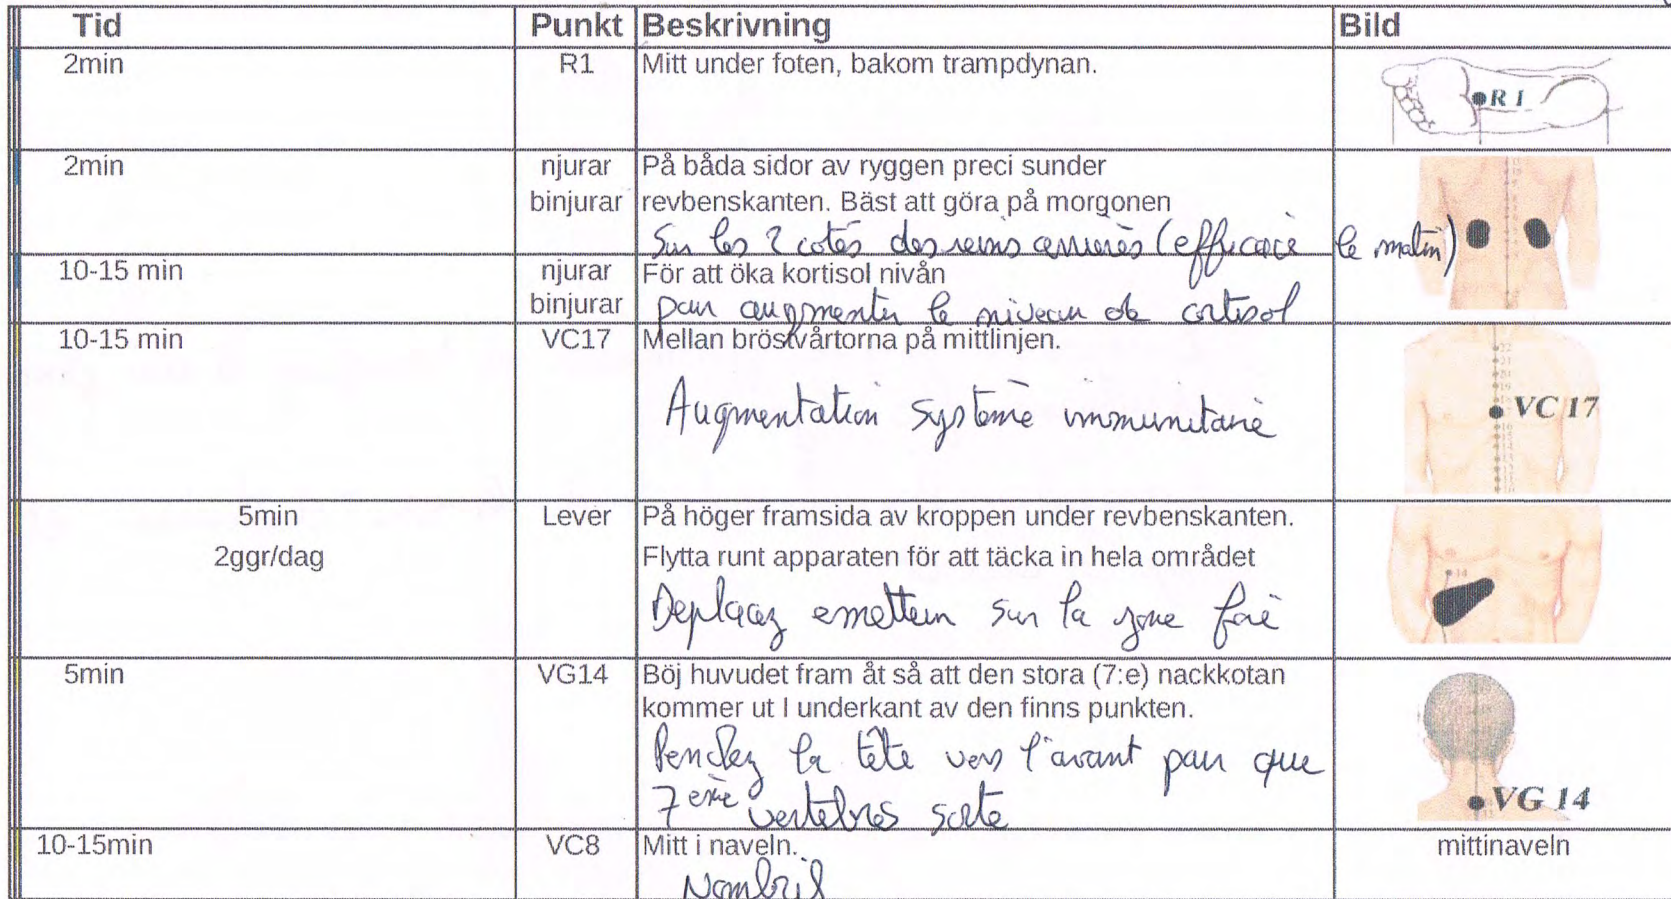 Tid Punkt Beskrivning Bild
2min R1 Mitt under foten, bakom trampdynan.
R 1
2min njurar På båda sidor av ryggen preci sunder
binjurar revbenskanten. Bäst att göra på morgonen
Sur les 2 cotés des reins arrières (efficace le matin)
10-15 min njurar För att öka kortisol nivån
binjurar pour augmenter le niveau de cortisol
10-15 min VC17 Mellan bröstvårtorna på mittlinjen.
Augmentation système immunitaire
VC 17
5min Lever På höger framsida av kroppen under revbenskanten.
2ggr/dag Flytta runt apparaten för att täcka in hela området
14
Deplacez emetteur sur la zone foie
5min VG14 Böj huvudet fram åt så att den stora (7:e) nackkotan
kommer ut I underkant av den finns punkten.
Penchez la tête vers l'avant pour que
7ème vertebres sorte
VG 14
10-15min VC8 Mitt i naveln. mittinaveln
Nombril